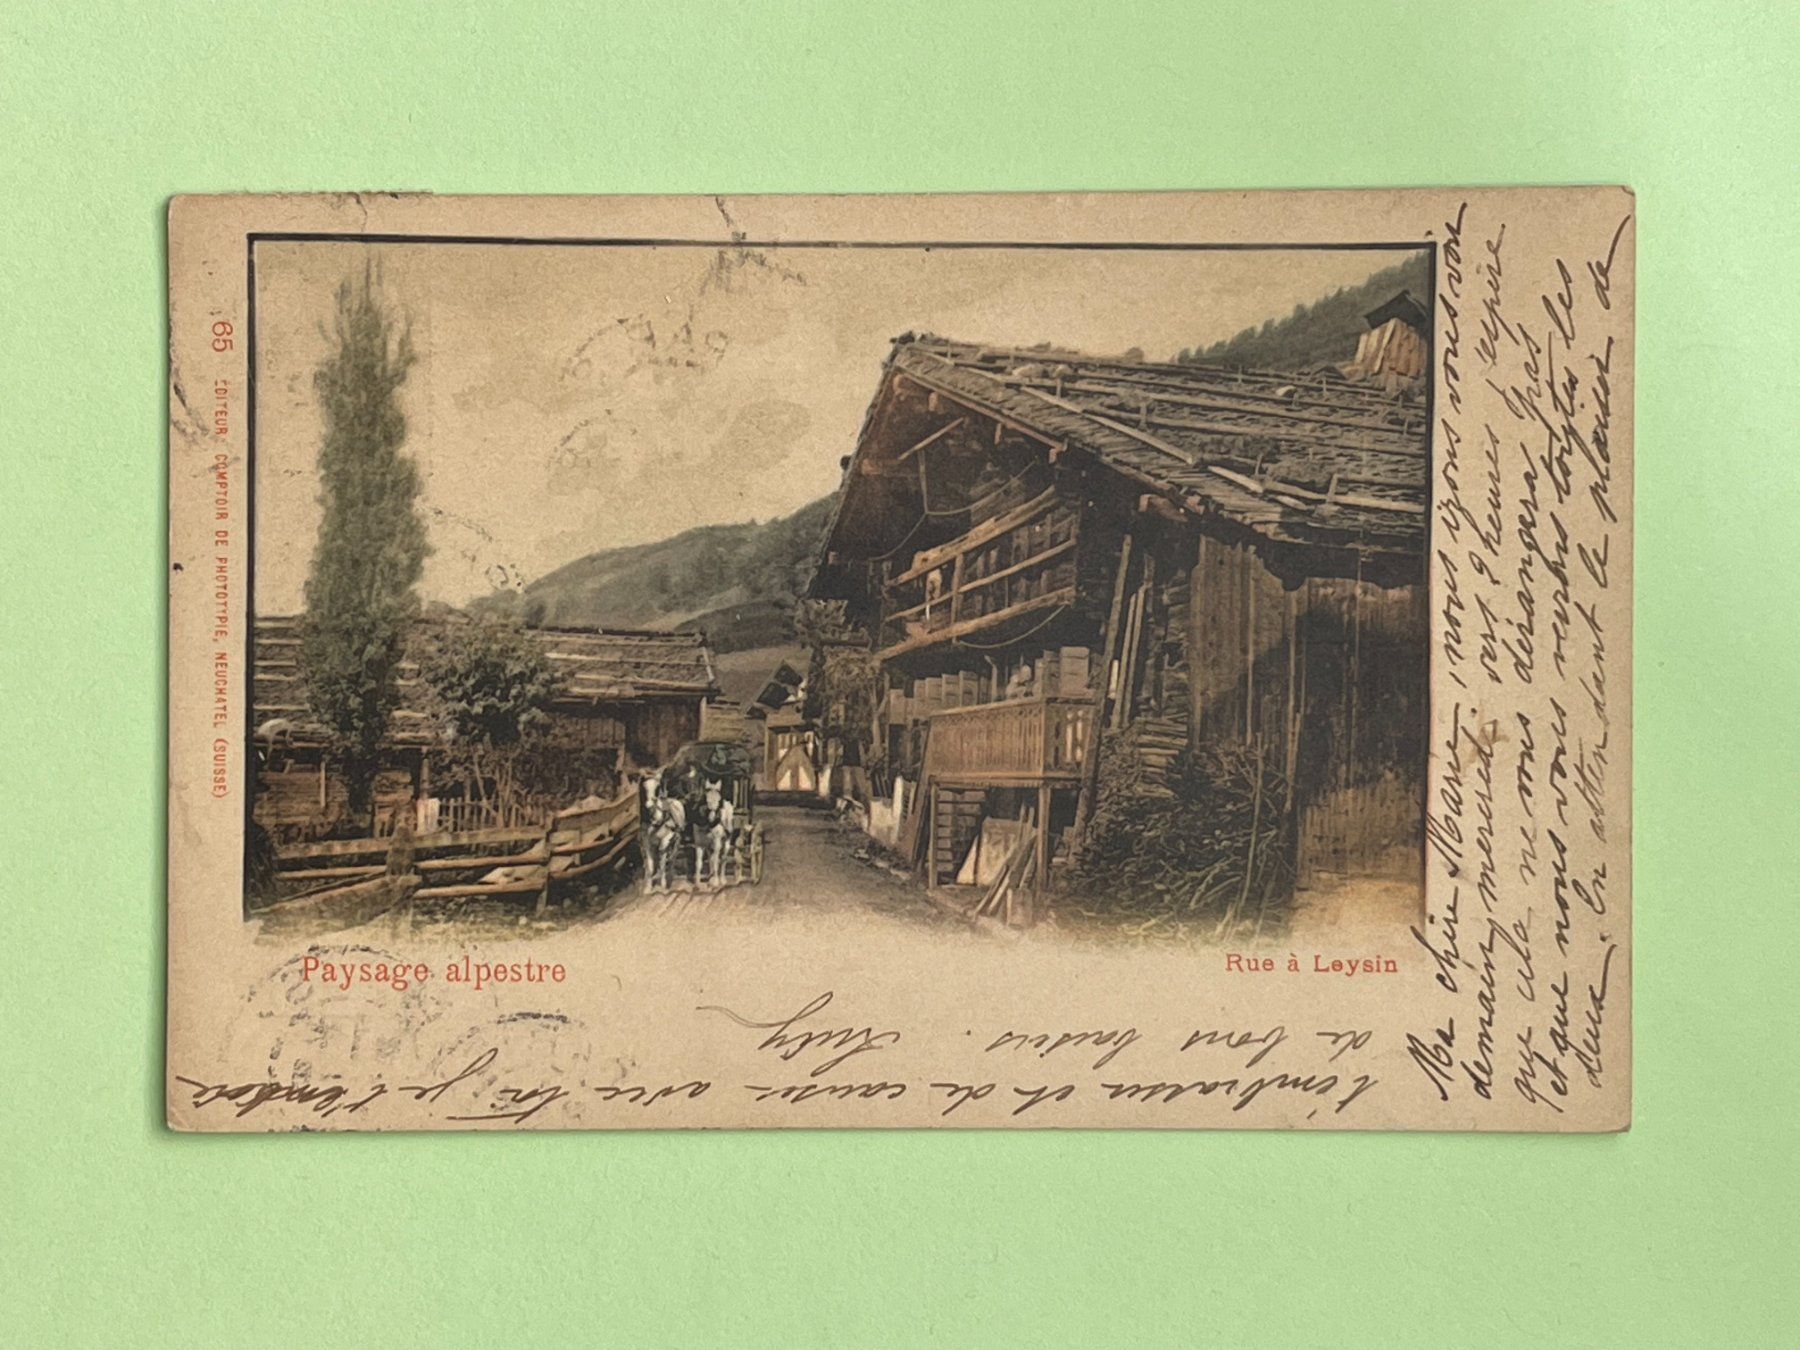 65 EDITEUR: COMPTOIR DE PHOTOTYPIE, NEUCHATEL (SUISSE)
Paysage alpestre
Rue à Leysin
Ma chère Marie, nous irons vous voir
demain, mercredi vers 2 heures j'espère
que cela ne vous dérangera pas
et que nous vous verrons toutes les
deux. En attendant le plaisir de
t'embrasser et de causer avec toi je t'envoie
de bons baisers.